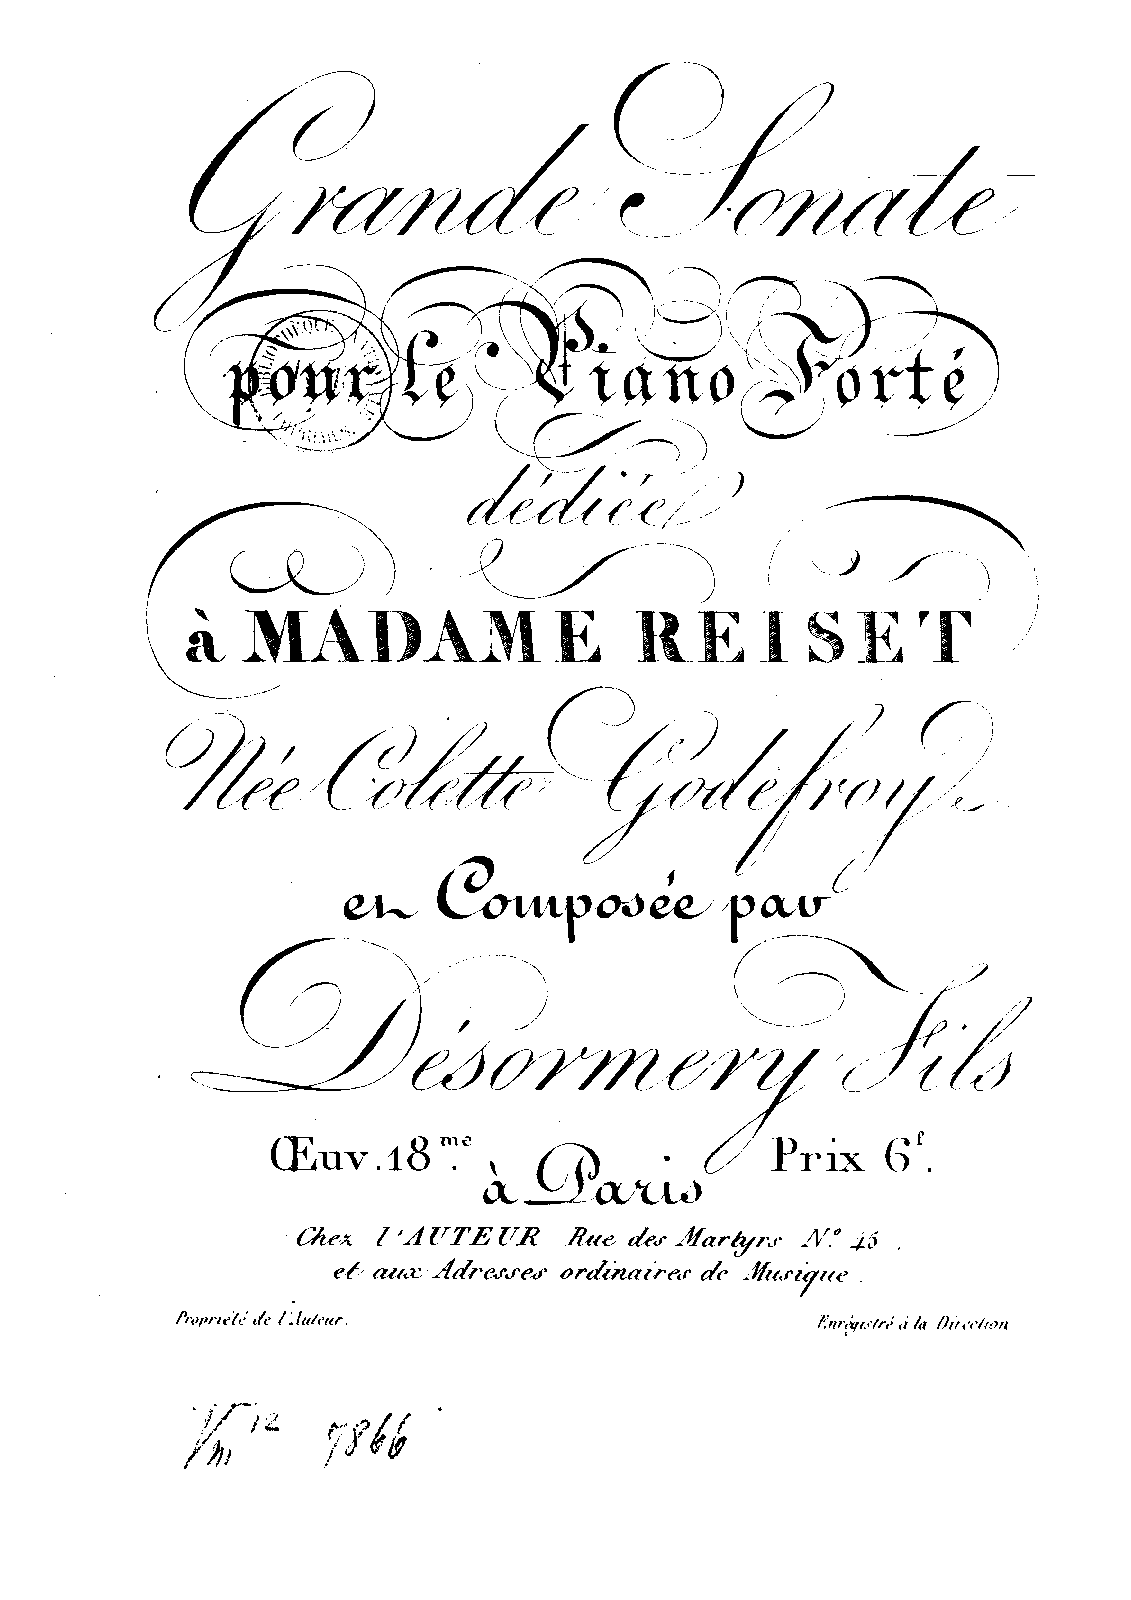 Grande Sonate
pour le Piano Forté
dédiée
à MADAME REISET
Née Colette Godefroy
et Composée par
Désormery Fils
Œuv. 18.me Prix 6f.
à Paris
Chez l'AUTEUR Rue des Martyrs N.o 45.
et aux Adresses ordinaires de Musique.
Propriété de l'Auteur. Enrégistré à la Direction
Vm 12 7866